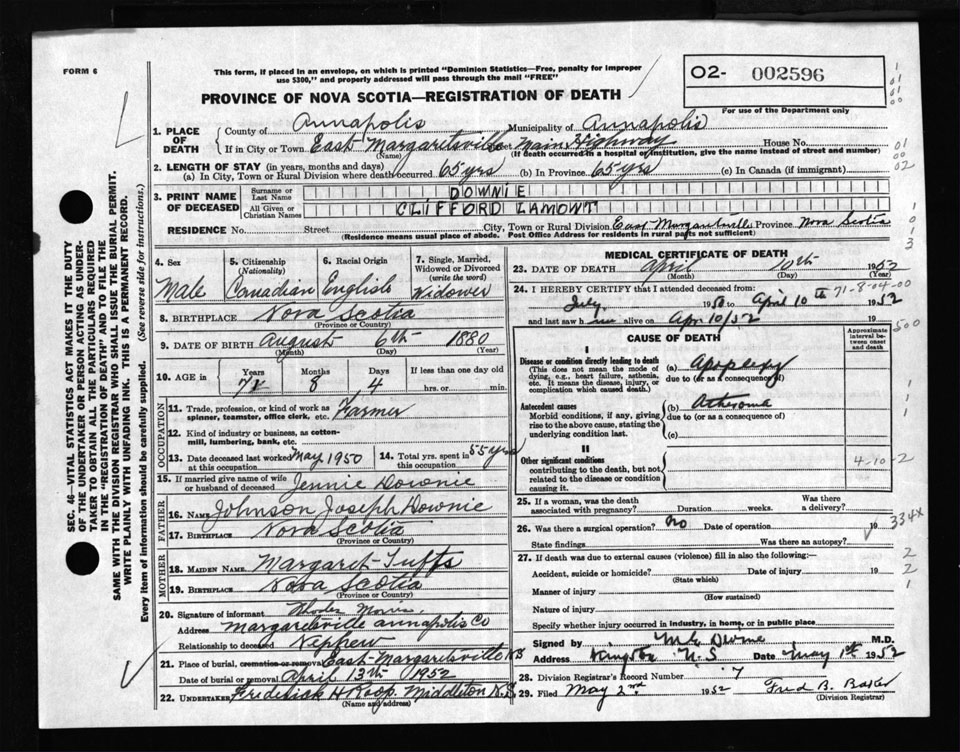 FORM 6
This form, if placed in an envelope, on which is printed "Dominion Statistics—Free, penalty for improper
use $300," and properly addressed will pass through the mail "FREE"
PROVINCE OF NOVA SCOTIA—REGISTRATION OF DEATH
O2- 002596
For use of the Department only
1. PLACE OF DEATH
County of Annapolis Municipality of Annapolis
If in City or Town East Margaretsville Main Highway House No.
(Name) (If death occurred in a hospital or institution, give the name instead of street and number)
2. LENGTH OF STAY (in years, months and days)
(a) In City, Town or Rural Division where death occurred 65 yrs (b) In Province 65 yrs (c) In Canada (if immigrant)
3. PRINT NAME OF DECEASED
Surname or Last Name DOWNIE
All Given or Christian Names CLIFFORD LAMONT
RESIDENCE No. Street City, Town or Rural Division East Margaretsville Province Nova Scotia
(Residence means usual place of abode. Post Office Address for residents in rural parts not sufficient)
SEC. 46—VITAL STATISTICS ACT MAKES IT THE DUTY
OF THE UNDERTAKER OR PERSON ACTING AS UNDER-
TAKER TO OBTAIN ALL THE PARTICULARS REQUIRED
IN THE "REGISTRATION OF DEATH" AND TO FILE THE
SAME WITH THE DIVISION REGISTRAR WHO SHALL ISSUE THE BURIAL PERMIT.
WRITE PLAINLY WITH UNFADING INK. THIS IS A PERMANENT RECORD.
Every item of information should be carefully supplied. (See reverse side for instructions.)
4. Sex
Male
5. Citizenship
(Nationality)
Canadian
6. Racial Origin
English
7. Single, Married,
Widowed or Divorced
(write the word)
Widower
8. BIRTHPLACE Nova Scotia
(Province or Country)
9. DATE OF BIRTH August 6th 1880
(Month) (Day) (Year)
10. AGE in
Years Months Days If less than one day old
71 8 4 hrs. or min.
OCCUPATION
11. Trade, profession, or kind of work as Farmer
spinner, teamster, office clerk, etc.
12. Kind of industry or business, as cotton-
mill, lumbering, bank, etc.
13. Date deceased last worked May 1950
at this occupation
14. Total yrs. spent in
this occupation 55 yrs
15. If married give name of wife
or husband of deceased Jennie Downie
FATHER
16. NAME Johnson Joseph Downie
17. BIRTHPLACE Nova Scotia
(Province or Country)
MOTHER
18. MAIDEN NAME Margaret Tufts
19. BIRTHPLACE Nova Scotia
(Province or Country)
20. Signature of informant Morris
Address Margaretsville Annapolis Co
Relationship to deceased Nephew
21. Place of burial, cremation or removal East Margaretsville N.S
Date of burial or removal April 13th 1952
22. UNDERTAKER Frederick H Roop Middleton N.S
(Name and address)
MEDICAL CERTIFICATE OF DEATH
23. DATE OF DEATH April 10th 1952
(Month) (Day)
24. I HEREBY CERTIFY that I attended deceased from: 71-8-04-00
July 1950 to April 10th 1952
and last saw him alive on Apr 10/52 19
CAUSE OF DEATH
Approximate
interval be-
tween onset
and death
I
Disease or condition directly leading to death
(This does not mean the mode of
dying, e.g., heart failure, asthenia,
etc. It means the disease, injury, or
complication which caused death.)
(a) Apoplexy
due to (or as a consequence of)
Antecedent causes
Morbid conditions, if any, giving
rise to the above cause, stating the
underlying condition last.
(b) Atheroma
due to (or as a consequence of)
(c)
II
Other significant conditions
contributing to the death, but not
related to the disease or condition
causing it.
4-10-2
25. If a woman, was the death
associated with pregnancy? Duration weeks. Was there
a delivery?
26. Was there a surgical operation? No Date of operation 19
334X
State findings Was there an autopsy?
27. If death was due to external causes (violence) fill in also the following:—
Accident, suicide or homicide? Date of injury 19
(State which)
Manner of injury
(How sustained)
Nature of injury
Specify whether injury occurred in industry, in home, or in public place
Signed by M.D.
Address Kingston N.S Date May 1st 1952
28. Division Registrar's Record Number 7
29. Filed May 2nd 1952 Fred B. Baxter
(Division Registrar)